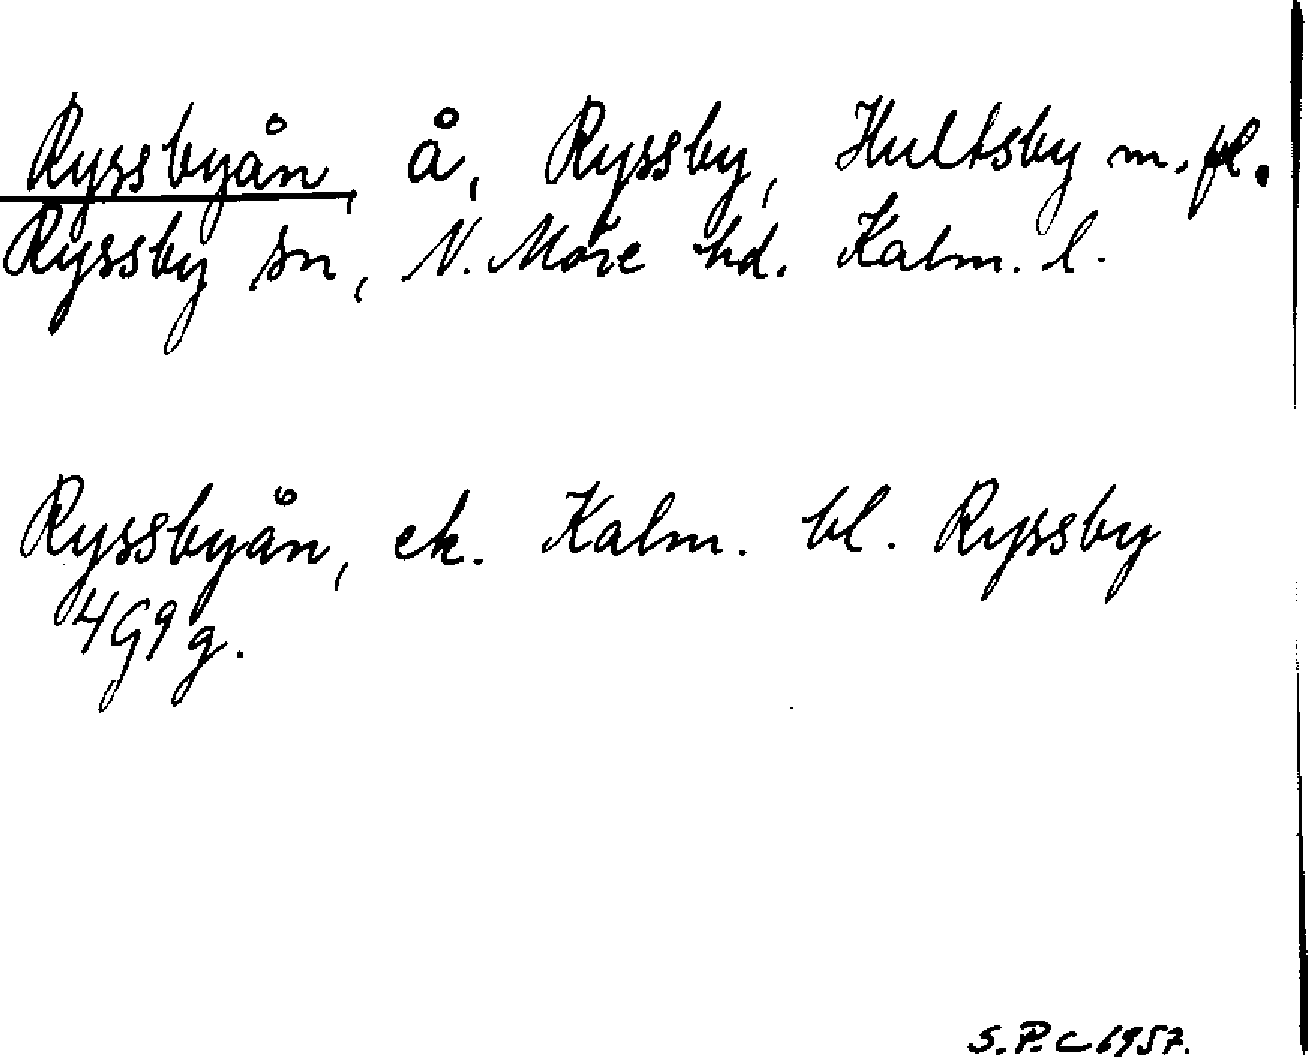 Ryssbyån, å, Ryssby, Hultsby m. fl.
Ryssby sn, N. Möre hd. Kalm. l.
Ryssbyån, ek. Kalm. bl. Ryssby
4G9g.
S.P.C 1957.